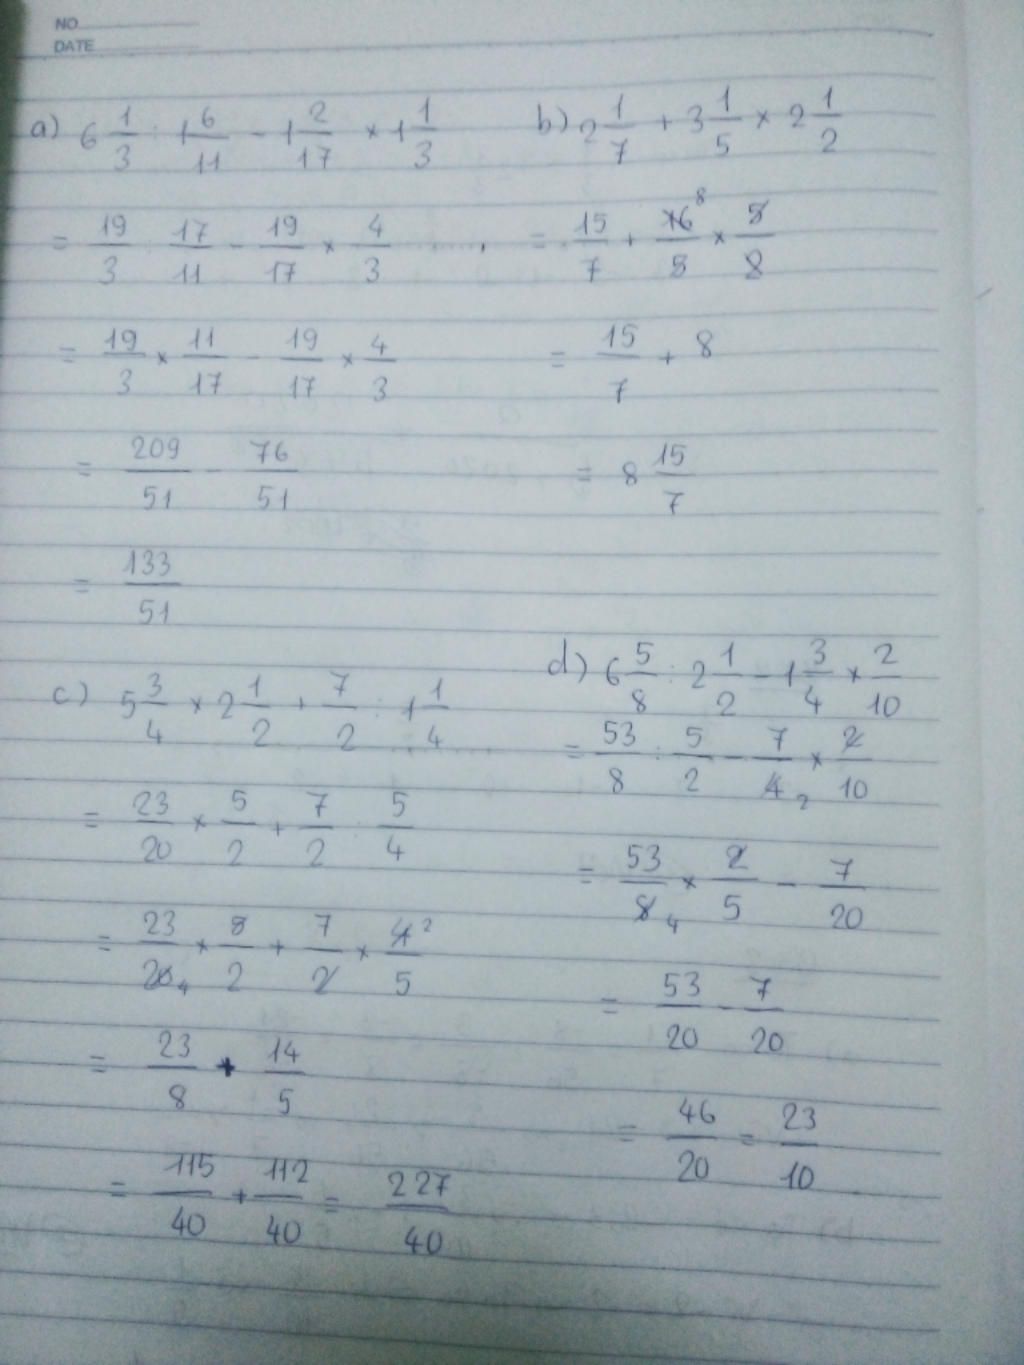 NO
DATE
a) 6 1/3 : 1 6/11 - 1 2/17 × 1 1/3
= 19/3 : 17/11 - 19/17 × 4/3
= 19/3 × 11/17 - 19/17 × 4/3
= 209/51 - 76/51
= 133/51
b) 2 1/7 + 3 1/5 × 2 1/2
= 15/7 + 16 8/5 × 5/2
= 15/7 + 8
= 8 15/7
c) 5 3/4 × 2 1/2 + 7/2 : 1 1/4
= 23/20 × 5/2 + 7/2 : 5/4
= 23/20 4 × 5/2 + 7/2 × 4 2/5
= 23/8 + 14/5
= 115/40 + 112/40 = 227/40
d) 6 5/8 : 2 1/2 - 1 3/4 × 2/10
= 53/8 : 5/2 - 7/4 2 × 2/10
= 53/8 4 × 2/5 - 7/20
= 53/20 - 7/20
= 46/20 = 23/10